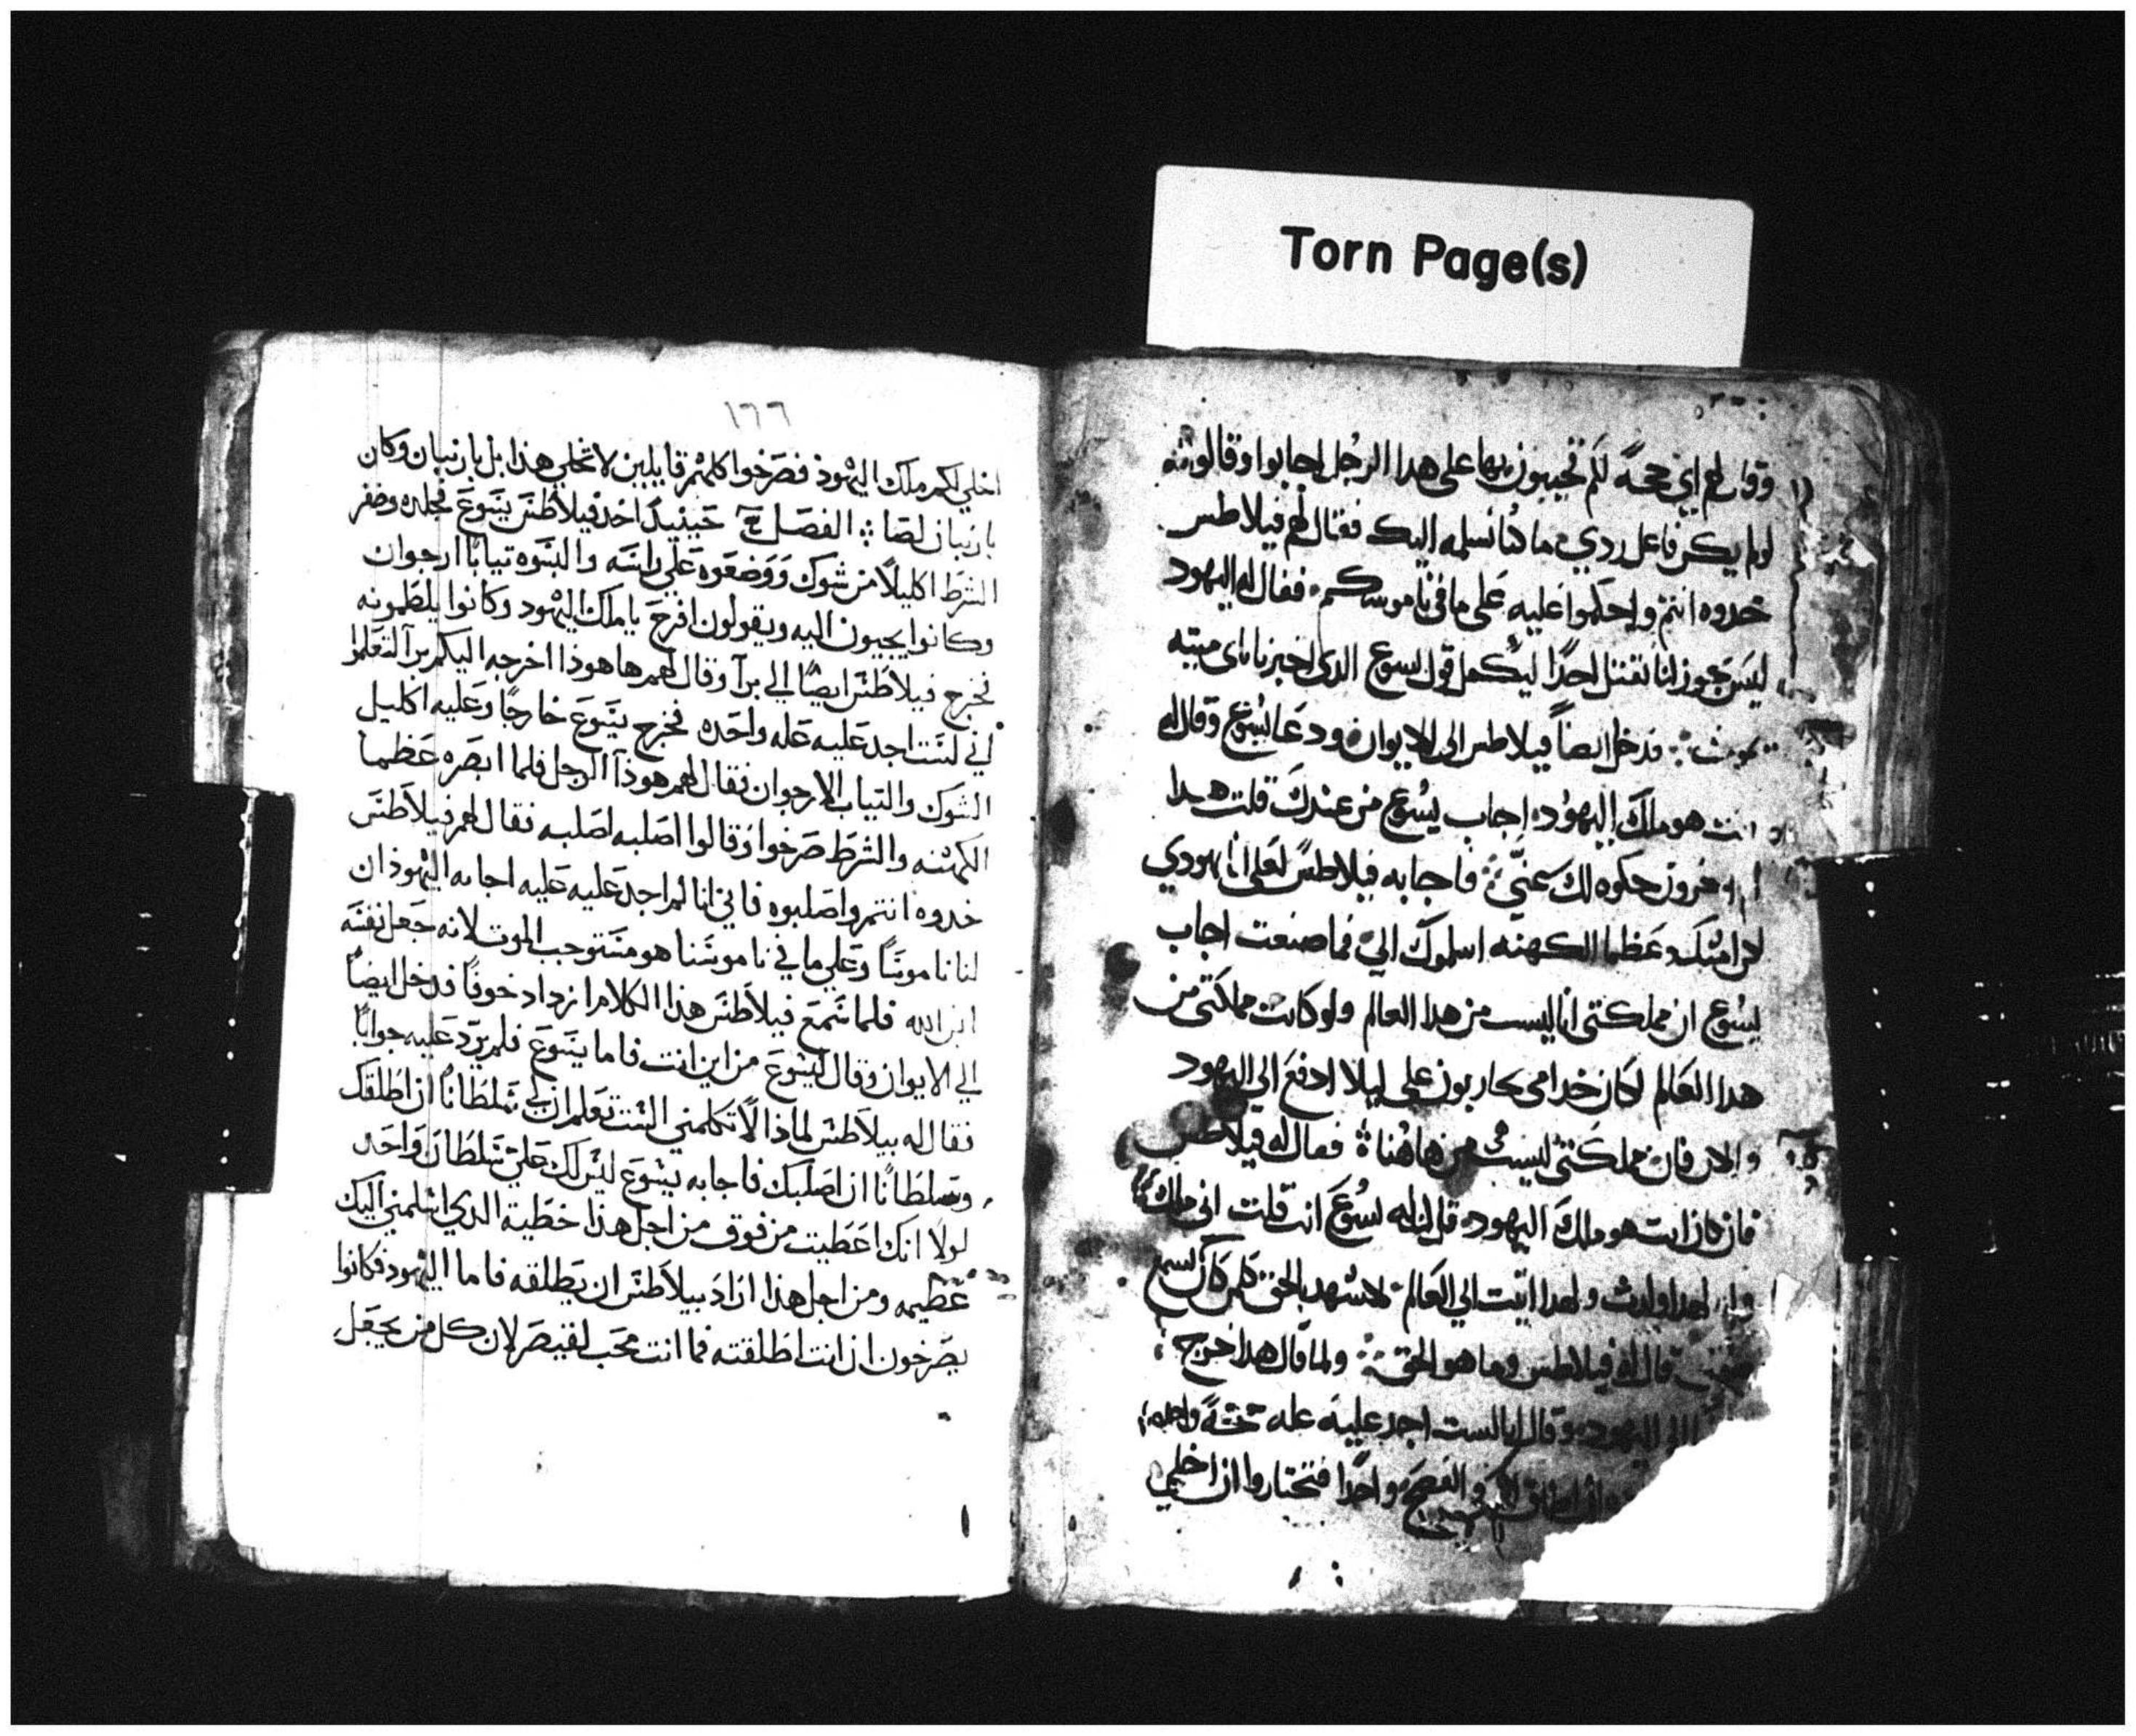 Torn Page(s)
وقال لهم اي حجة لكم تجيبون بها على هدا الرجل اجابوا وقالو له
لو لم يكن فاعل ردي ما كنا نسلمه اليك فقال لهم فيلاطس
خدوه انتم واحكموا عليه على ما في ناموسكم ففال له اليهود
ليس يجوز لنا نقتل احدًا ليكمل قول يسوع الدى اخبر باى ميته
يموت فدخل ايضاً فيلاطس الى الايوان ودعا يسوع وقال له
انت هو ملك اليهود اجاب يسوع من عندك قلت هدا
اخرون حكوه لك عني فاجابه فيلاطس لعلى انا يهودي
لان امتك وعظما الكهنه اسلموك الي فما صنعت اجاب
يسوع ان مملكتى انا ليست من هدا العالم ولو كانت مملكتى من
هدا العالم لكان خدامى يحاربون على ليلا ادفع الى اليهود
والان فان مملكتى ليست من هاهنا فقال له فيلاطس
فان كان انت هو ملك اليهود قال له يسوع انت قلت انى ملك
وانا لهدا ولدت ولهدا اتيت الى العالم لاشهد بالحق كلمن كان يسمع
قال له فيلاطس وما هو الحق ولما قال هدا خرج
الى اليهود وقال انا لست اجد عليه عله واحده
اطلق لكم في الفصح واحدًا فتختاروا ان اخلي
١٦٦
اخلي لكم ملك اليهود فصرخوا كلهم قايلين لا تخلي هذا بل بارنبان وكان
بارنبان لصا الفصل حينيد اخذ فيلاطس يسوع فجلده وضفر
الشرط اكليلًا من شوك ووضعوه علي راسه والبسوه تيابًا ارجوان
وكانوا يجيون اليه ويقولون افرح يا ملك اليهود وكانوا يلطمونه
فخرج فيلاطس ايضًا الي برا وقال لهم ها هوذا اخرجه اليكم برا لتعلموا
اني لست اجد عليه عله واحده فخرج يسوع خارجًا وعليه اكليل
الشوك والتياب الارجوان فقال لهم هوذا الرجل فلما ابصره عظما
الكهنه والشرط صرخوا وقالوا اصلبه اصلبه فقال لهم فيلاطس
خدوه انتم واصلبوه فاني انا لم اجد عليه عليه اجابه اليهود ان
لنا ناموسًا وعلي ما في ناموسنا هو مستوجب الموت لانه جعل نفسه
ابن الله فلما سمع فيلاطس هذا الكلام ازداد خوفًا فدخل ايضًا
الي الايوان وقال ليسوع من اين انت فاما يسوع فلم يرد عليه جوابًا
فقال له بيلاطس لماذا لا تكلمني الست تعلم ان لي سلطانًا ان اطلقك
وسلطانًا ان اصلبك فاجابه يسوع ليس لك علي سلطان واحد
لولا انك اعطيت من فوق من اجل هذا خطية الدي اسلمني اليك
عظيمه ومن اجل هذا اراد بيلاطس ان يطلقه فاما اليهود فكانوا
يصرخون ان انت اطلقته فما انت محب لقيصر لان كل من يجعل